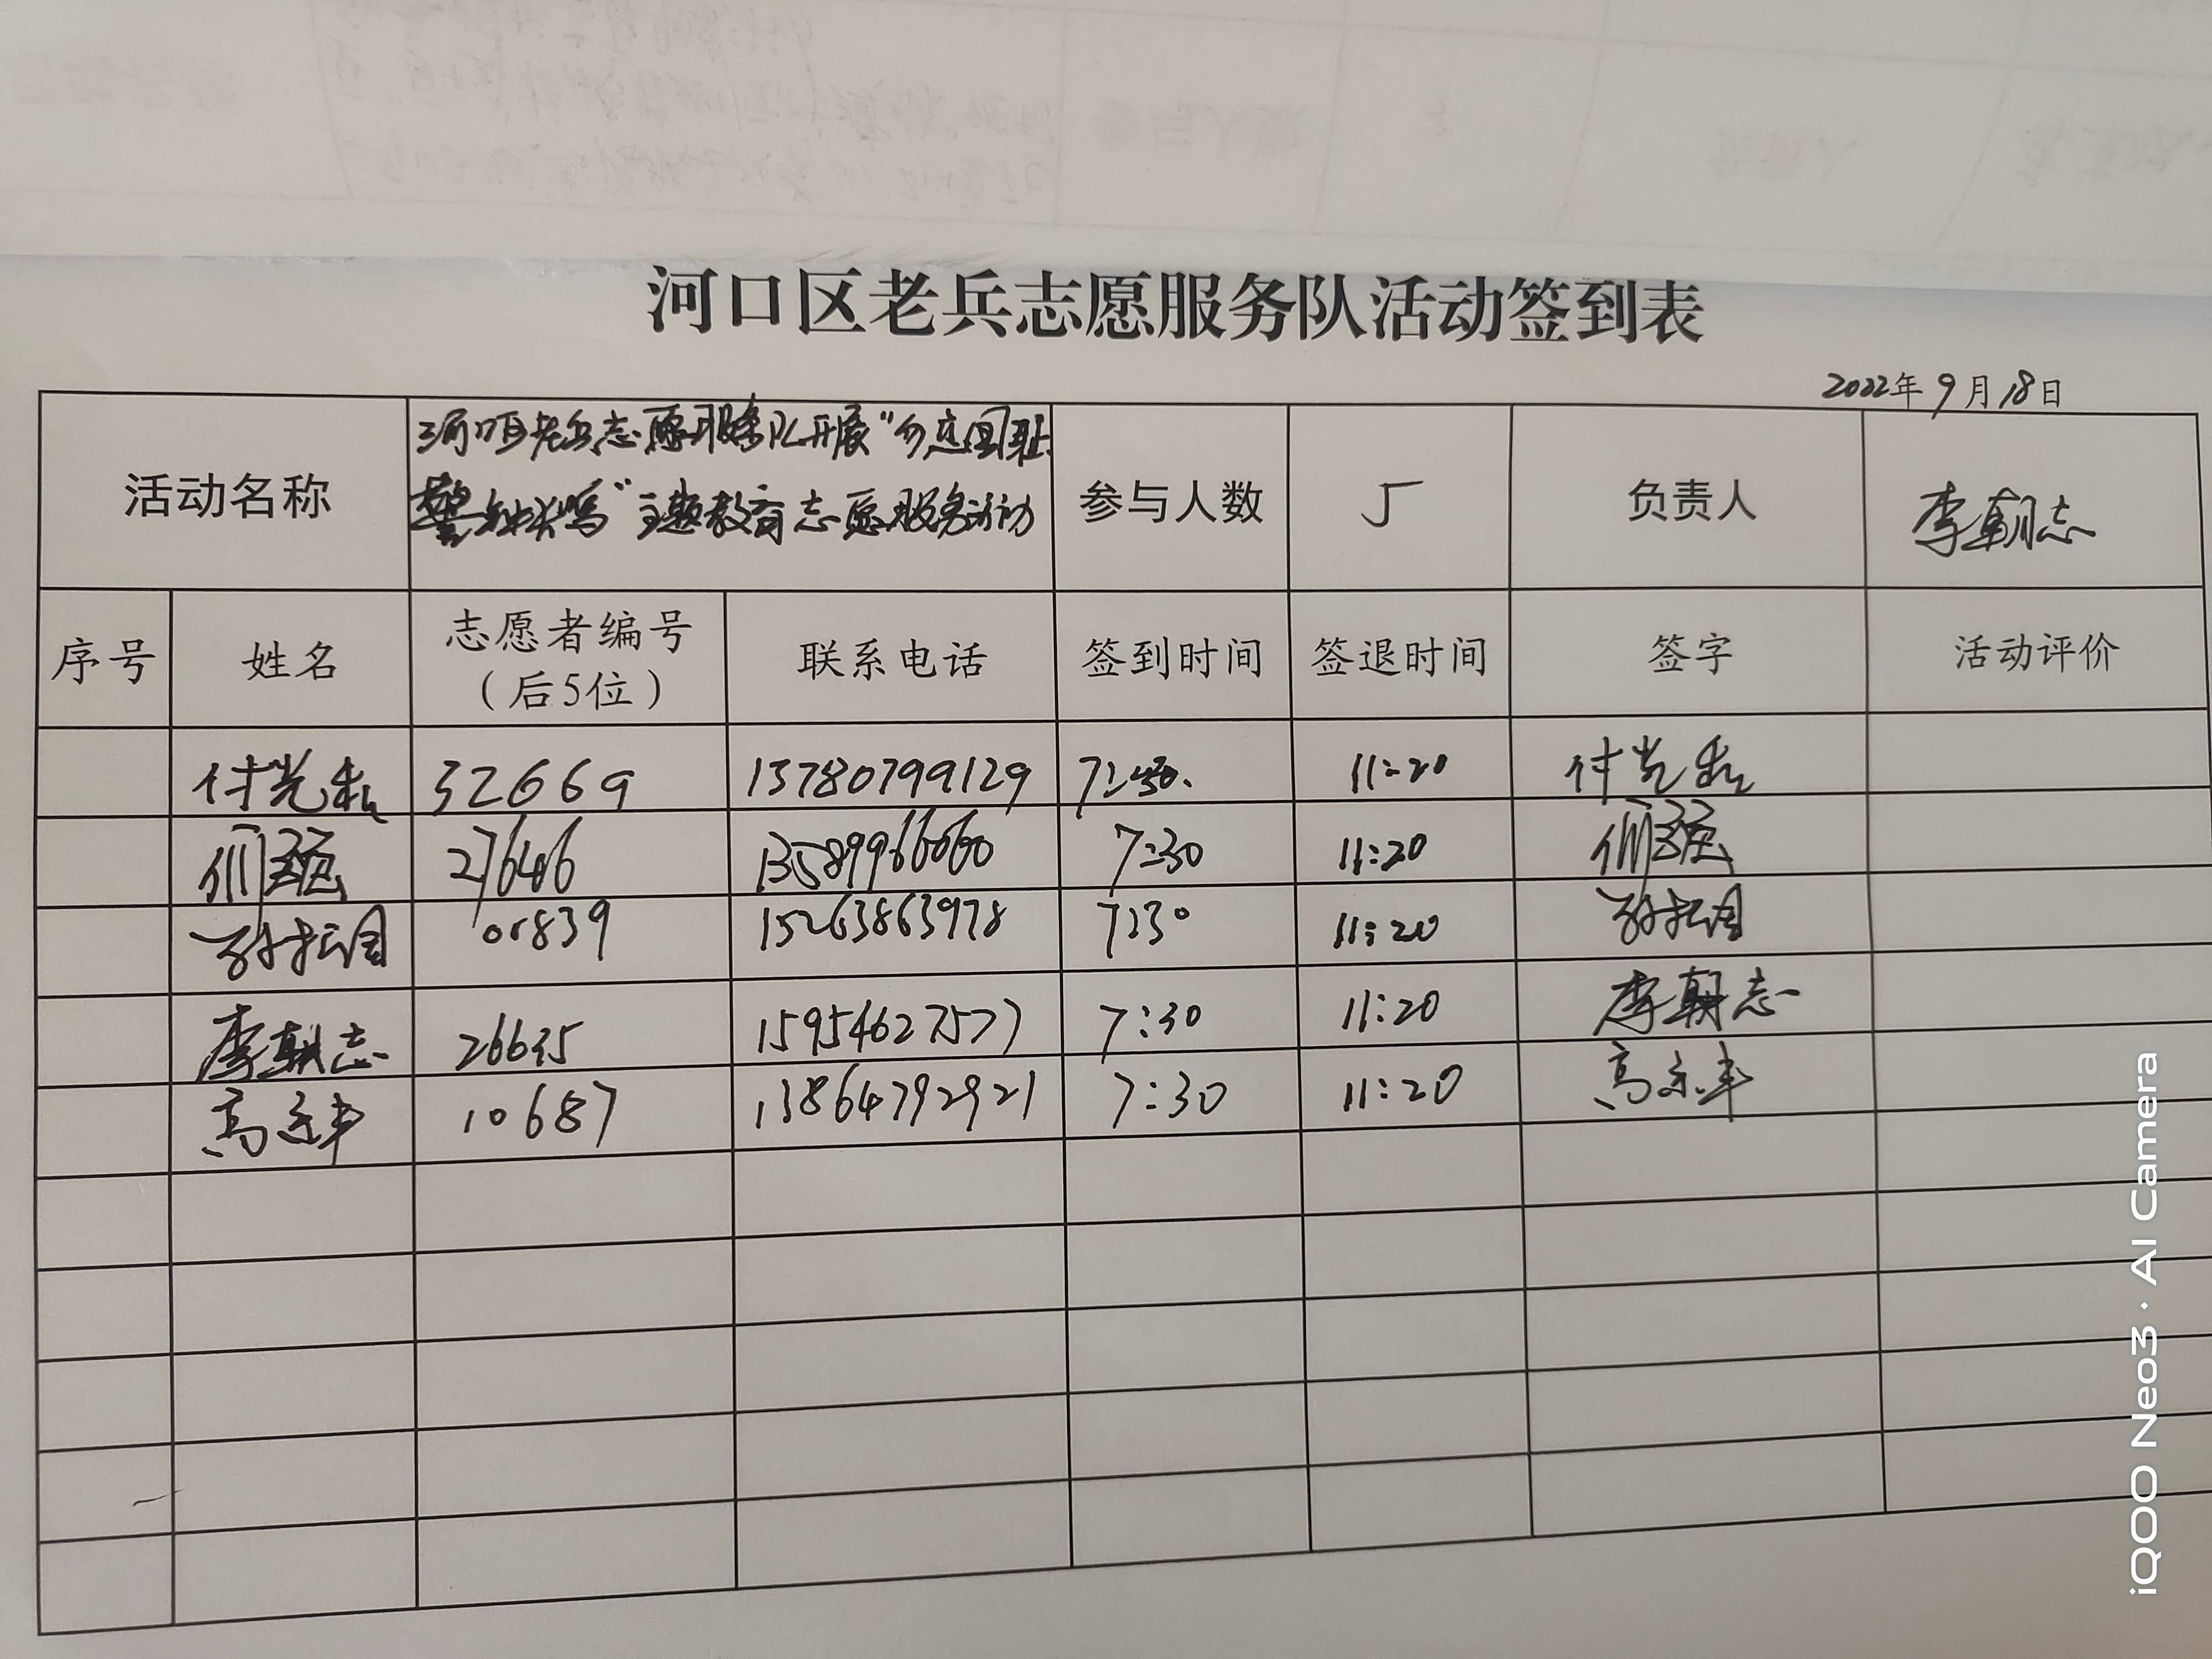 河口区老兵志愿服务队活动签到表
2022年9月18日
活动名称
河口区老兵志愿服务队开展“勿忘国耻
警钟长鸣”主题教育志愿服务活动
参与人数 5 负责人 李朝志
序号 姓名 志愿者编号（后5位） 联系电话 签到时间 签退时间 签字 活动评价
付光 32669 13780799129 7:30 11:20 付光
27646 13589966060 7:30 11:20
孙振国 01839 15263863978 7:30 11:20 孙振国
李朝志 26635 15954627577 7:30 11:20 李朝志
高永丰 10687 13864792921 7:30 11:20 高永丰
iQOO Neo3 · AI Camera